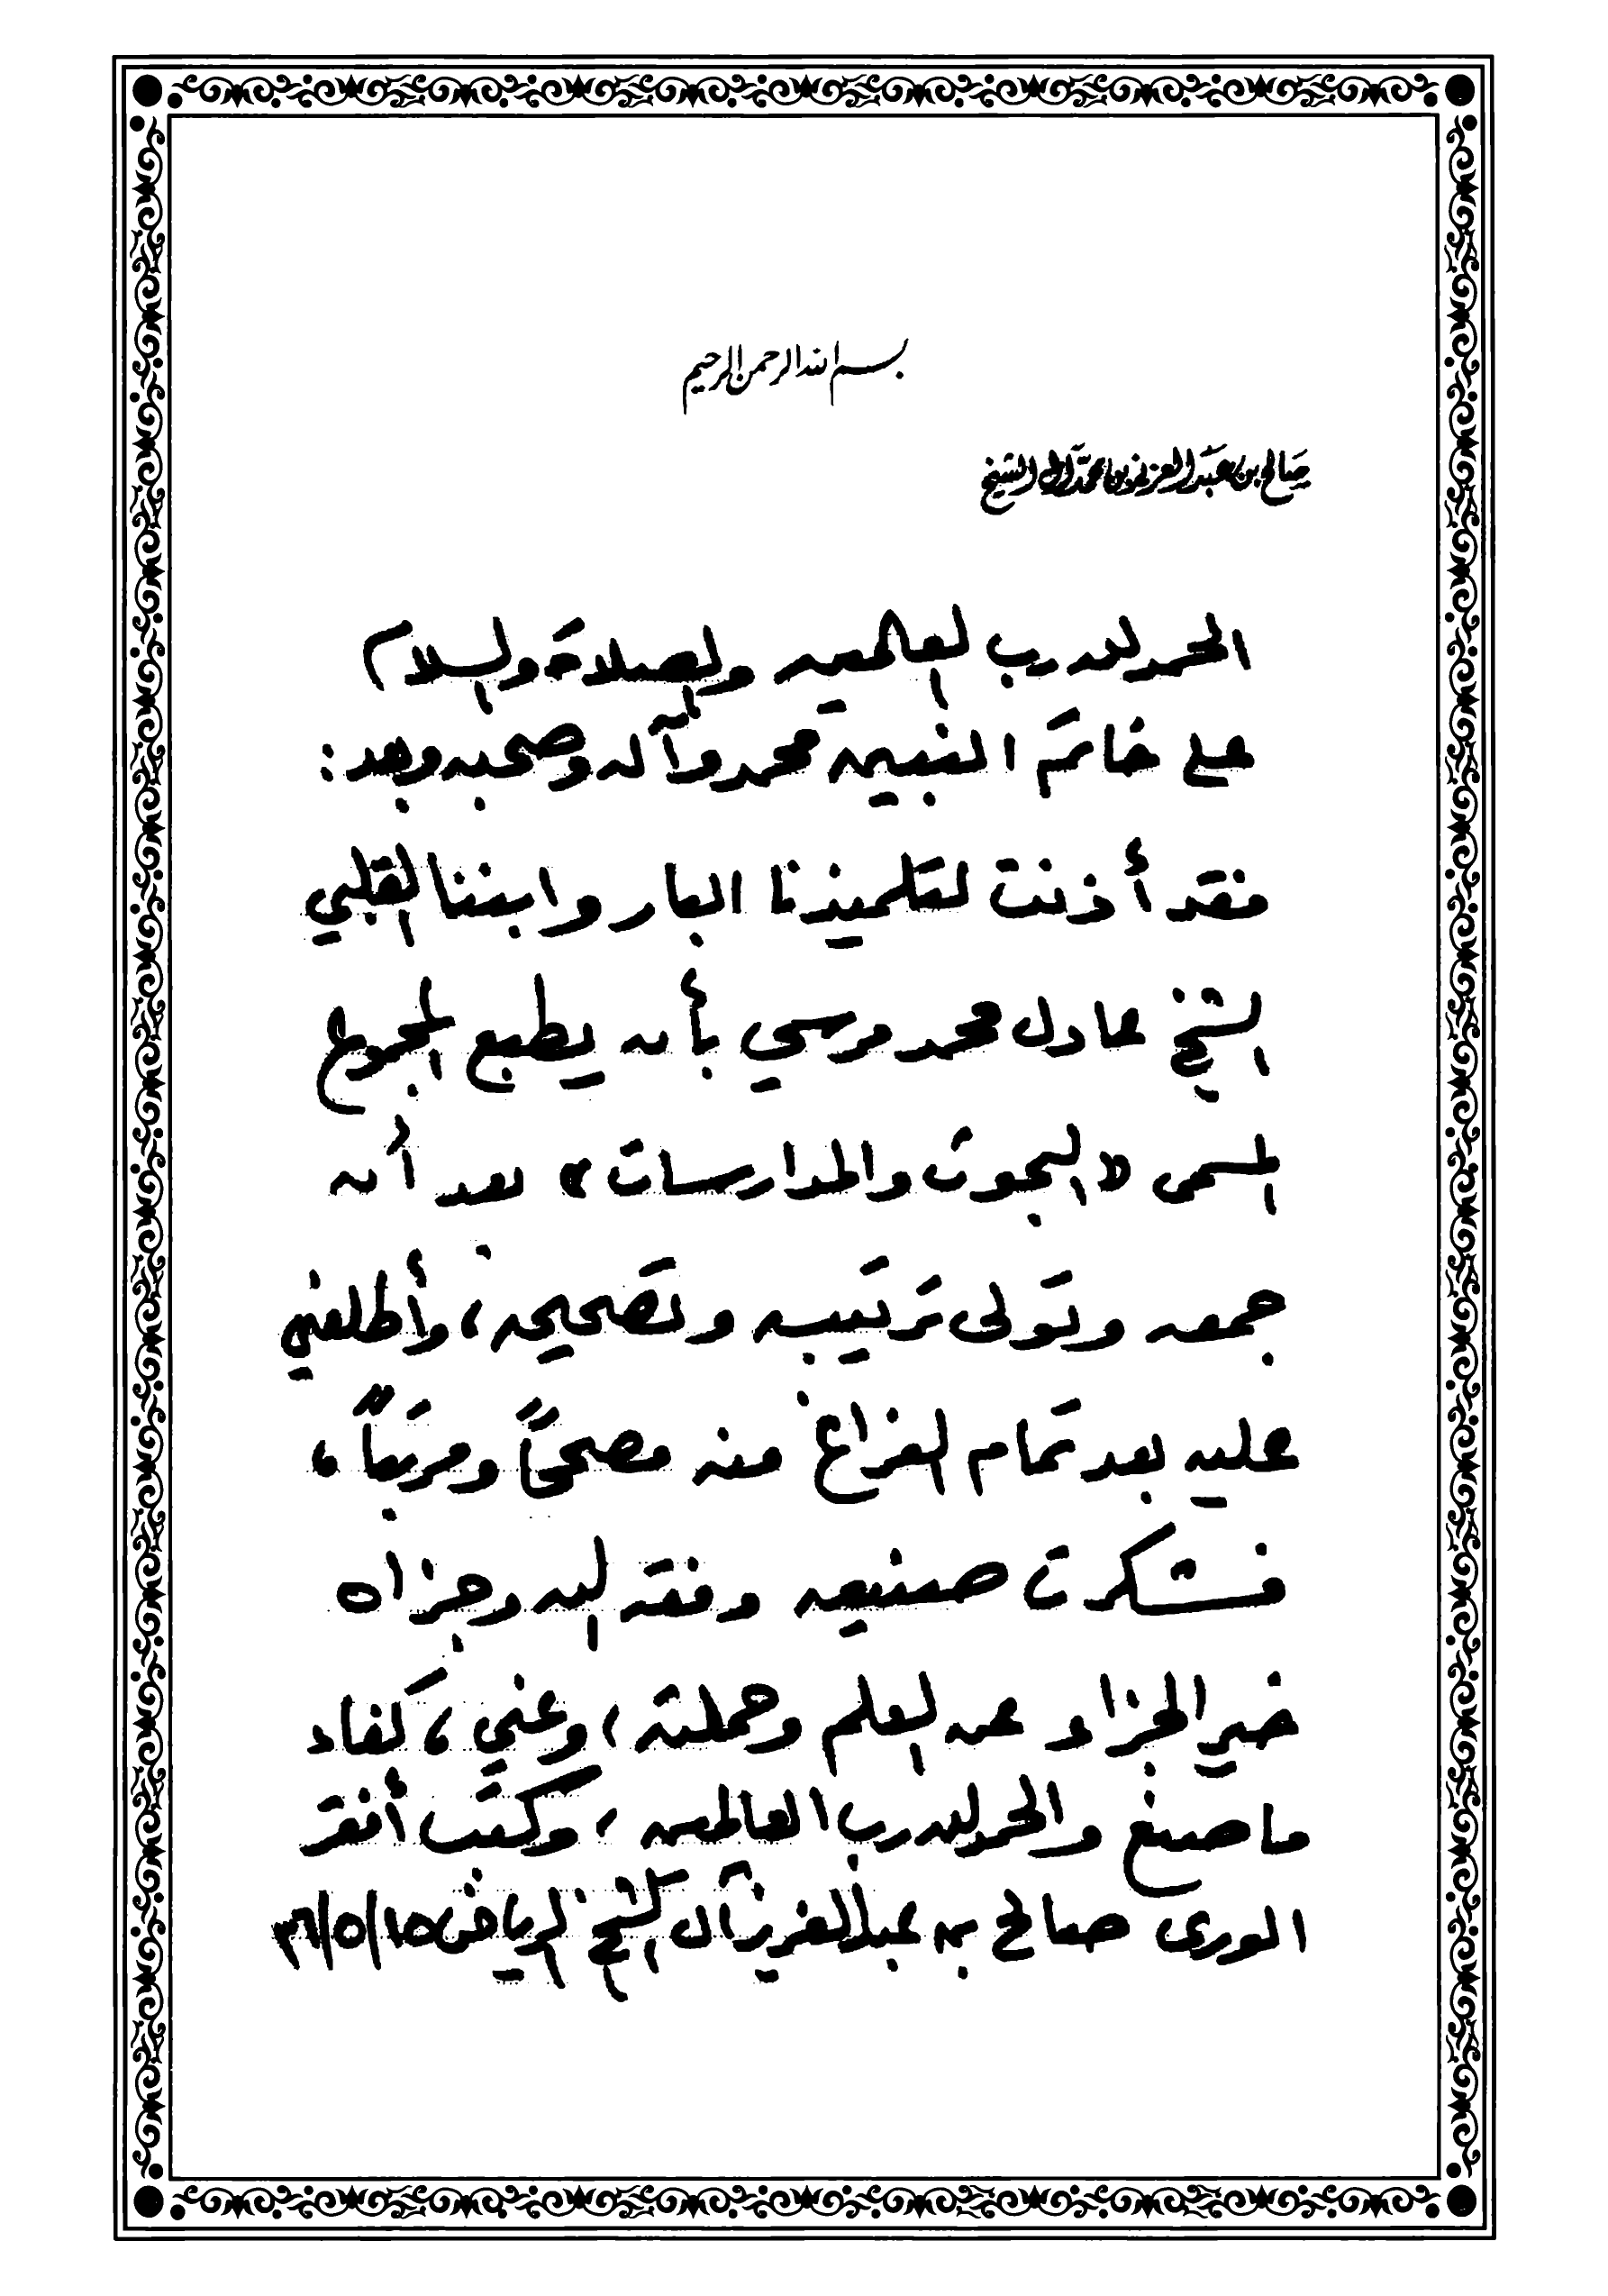 بسم الله الرحمن الرحيم
صالح بن عبد العزيز بن محمد آل الشيخ
الحمد لله رب العالمين والصلاة والسلام
على خاتم النبيين محمد وآله وصحبه وبعد :
فقد أذنت لتلميذنا البار وابننا القلبي
الشيخ عادل محمد مرسي بأن يطبع المجموع
المسمى « البحوث والمدارسات » بعد أن
جمعه وتولى ترتيبه وتصحيحه ، وأطلعني
عليه بعد تمام الفراغ منه مصححاً ومرتباً ،
فشكرت صنيعه وفقه الله وجزاه
خير الجزاء عن العلم وحملته ، وعني ، كفاء
ما صنع والحمد لله رب العالمين ، وكتب أفقر
الورى صالح بن عبد العزيز آل الشيخ الرياض ١٥/٥/٣٦